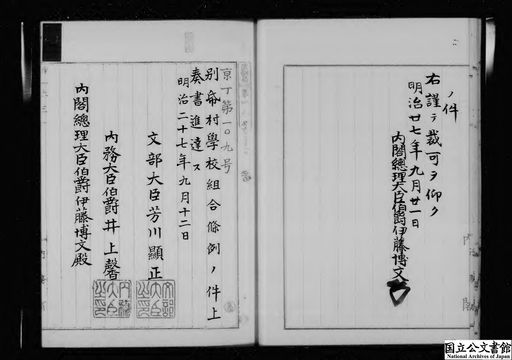 ノ件
右謹テ裁可ヲ仰ク
明治廿七年九月廿一日
内閣總理大臣伯爵伊藤博文
京丁第一〇九号
別冊村學校組合條例ノ件上
奏書進達ス
明治二十七年九月十二日
文部大臣芳川顯正
内務大臣伯爵井上馨
内閣總理大臣伯爵伊藤博文殿
国立公文書館
National Archives of Japan